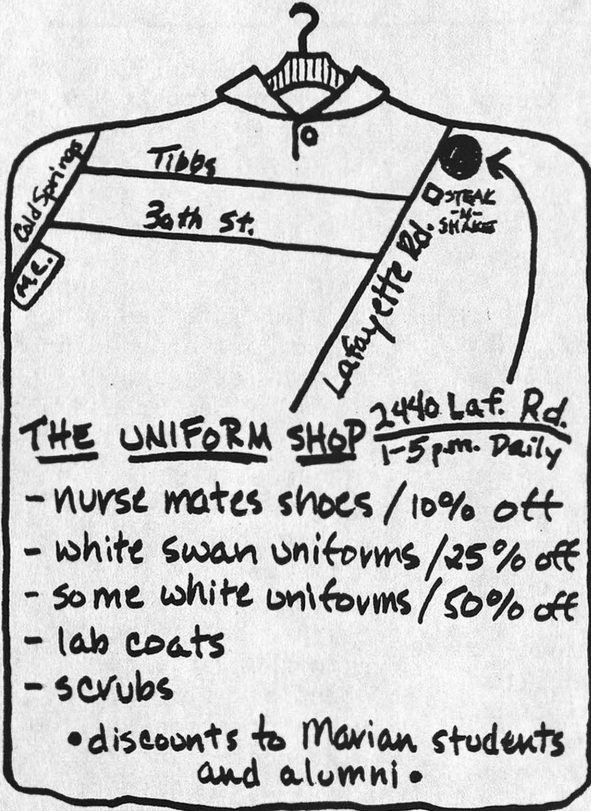 Cold Springs
Tibbs
30th St.
M.C.
Lafayette Rd.
STEAK
-N-
SHAKE
THE UNIFORM SHOP
2440 Laf. Rd.
1-5 p.m. Daily
- nurse mates shoes / 10% off
- white swan uniforms / 25% off
- some white uniforms / 50% off
- lab coats
- scrubs
• discounts to Marian students
and alumni •